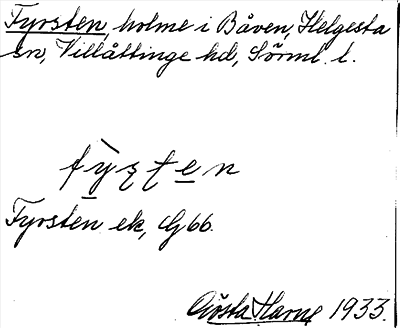 Fyrsten, holme i Båven, Helgesta
sn, Villåttinge hd, Sörml. l.
fy̱ʂʈe̱n
Fyrsten ek, G66.
Gösta Harne 1933.